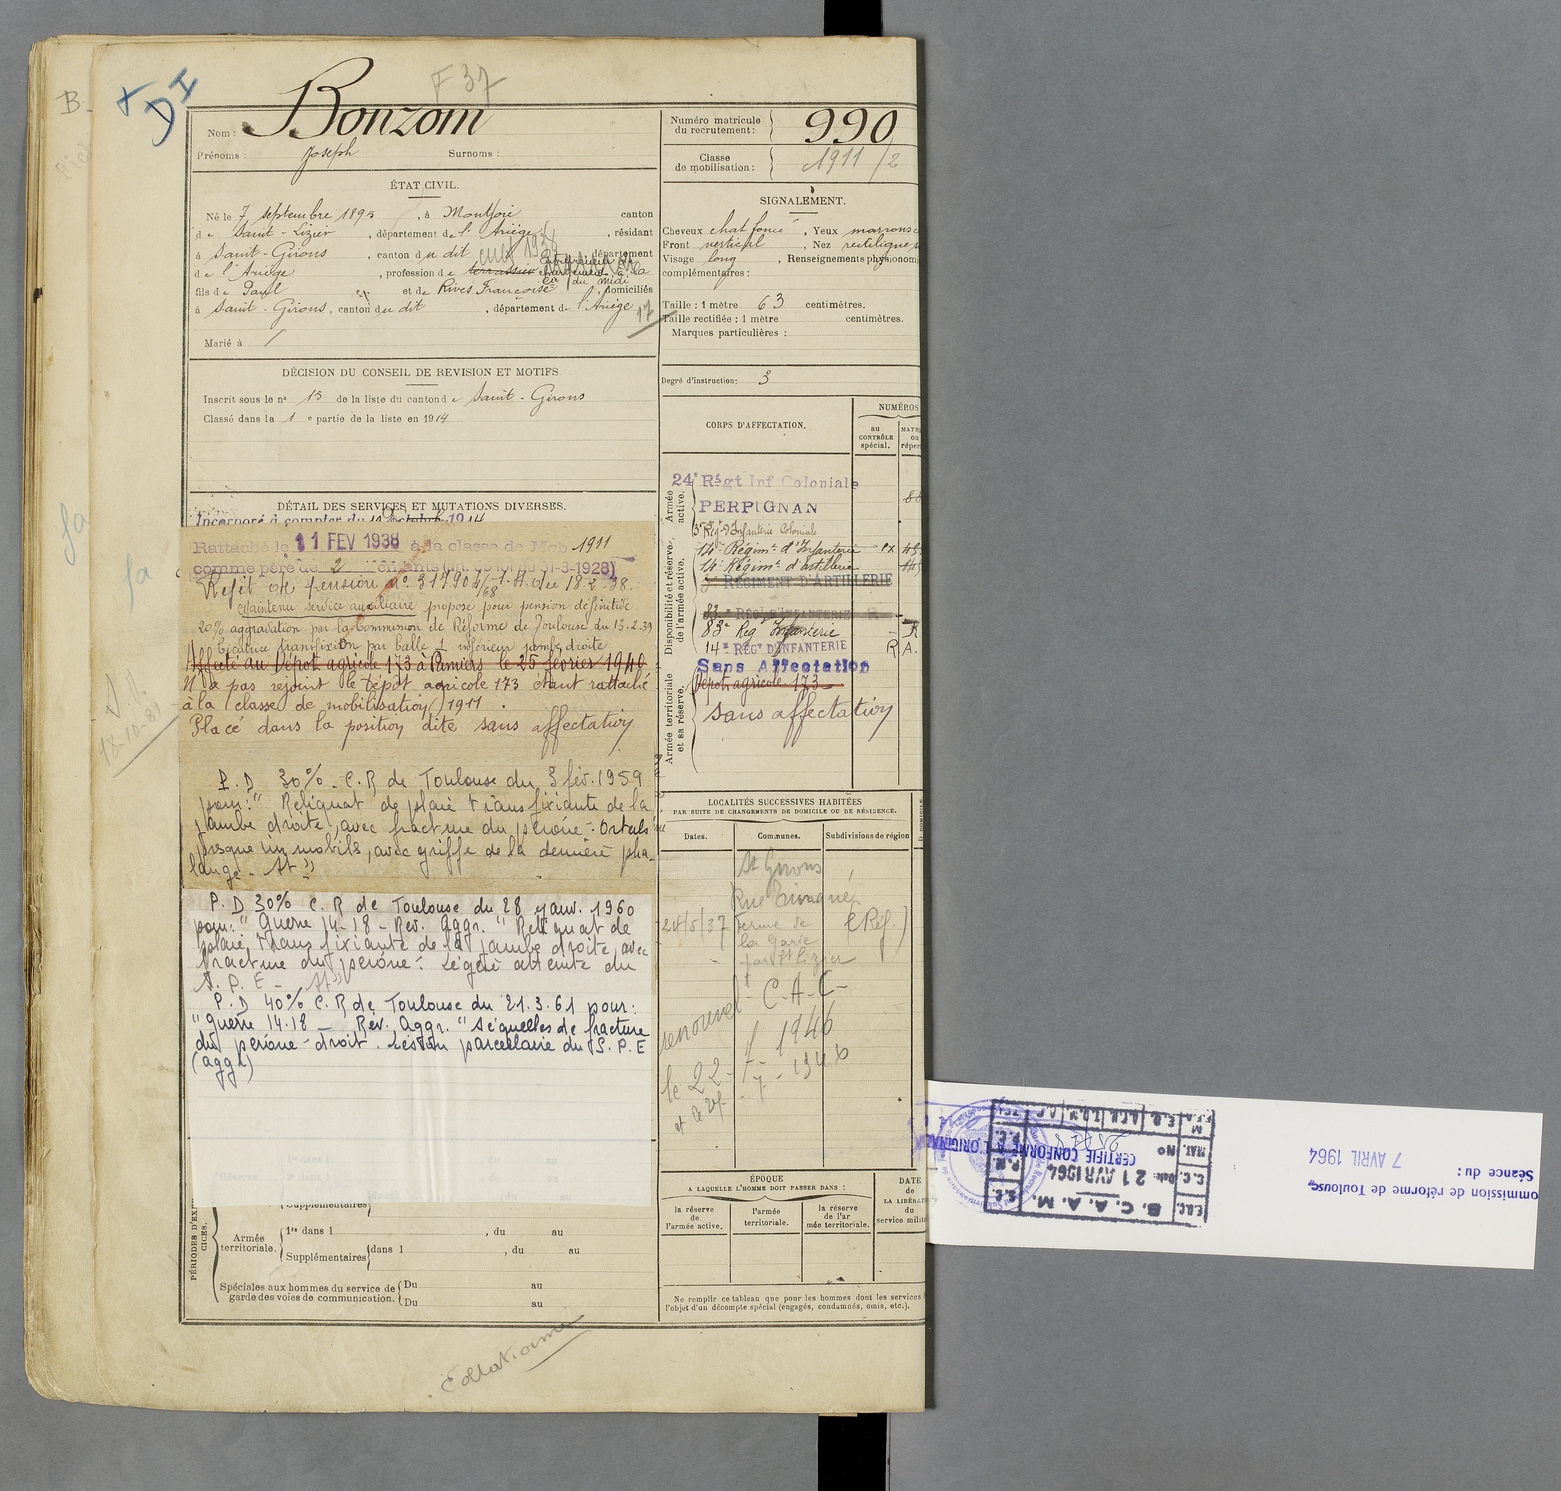 F 37
B.
DI
Nom : Bonzom
Prénoms : Joseph Surnoms :
Numéro matricule du recrutement : 990
Classe de mobilisation : 1911 / 2
ÉTAT CIVIL.
Né le 7 septembre 189 , à Montjoie canton
de Saint-Lizier , département de l'Ariège , résidant
à Saint-Girons , canton du dit département
de l'Ariège , profession de terrassier
fils de Paul et de Rives Françoise , domiciliés
à Saint-Girons, canton du dit , département de l'Ariège
17
Marié à /
SIGNALEMENT.
Cheveux chat foncé , Yeux marrons
Front vertical , Nez rectiligne
Visage long , Renseignements physionomi
complémentaires :
Taille : 1 mètre 63 centimètres.
Taille rectifiée : 1 mètre centimètres.
Marques particulières :
Degré d'instruction : 3
DÉCISION DU CONSEIL DE REVISION ET MOTIFS.
Inscrit sous le n° 13 de la liste du canton de Saint-Girons
Classé dans la 1e partie de la liste en 1914
DÉTAIL DES SERVICES ET MUTATIONS DIVERSES.
Incorporé à compter du 1914
Rattaché le 11 FEV 1938 à la classe de Mob 1911
comme père de 2 enfants 31-3-1928)
Maintenu service auxiliaire proposé pour pension définitive
20% aggravation par la Commission de Réforme de Toulouse du 13-2-39
Cicatrice transfixion par balle inférieur jambe droite
Affecté au Dépôt agricole 173 à Pamiers le 25 février 1940
N'a pas rejoint le Dépôt agricole 173 étant rattaché
à la classe de mobilisation 1911.
Placé dans la position dite sans affectation
P.D 30% C.R de Toulouse du 3 fév. 1959
pour : " Reliquat de plaie transfixiante de la
jambe droite, avec fracture du péroné. Orteils
presque immobiles, avec griffe de la dernière pha-
lange. At "
P.D 30% C.R de Toulouse du 28 janv. 1960
pour : " Guerre 14-18 - Rev. Aggr. " Reliquat de
plaie transfixiante de la jambe droite, avec
fracture du péroné. Légère atteinte du
S.P.E - At "
P.D 40% C.R de Toulouse du 21.3.61 pour :
" guerre 14.18 - Rev. Aggr. " Séquelles de fracture
du péroné droit. Lésion parcellaire du S.P.E
(aggr)
CORPS D'AFFECTATION.
NUMÉROS
au CONTRÔLE spécial.
Armée active.
24e Régt Inf Coloniale
PERPIGNAN
3e Rég d'Infanterie Coloniale
Disponibilité et réserve de l'armée active.
14e Régimt d'Infanterie
14e Régimt d'artillerie
RÉGIMENT D'ARTILLERIE
83e Reg Infanterie R
14e RÉGt D'INFANTERIE R.A.
Sans Affectation
Armée territoriale et sa réserve.
Dépôt agricole 173
sans affectation
LOCALITÉS SUCCESSIVES HABITÉES
PAR SUITE DE CHANGEMENTS DE DOMICILE OU DE RÉSIDENCE.
Dates. Communes. Subdivisions de région
St Girons
24/5/37 Ferme de (Réf.)
la Garde
par St Lizier
renouvel C-A-C-
1946
le 22-
ÉPOQUE
A LAQUELLE L'HOMME DOIT PASSER DANS :
la réserve de l'armée active.
l'armée territoriale.
la réserve de l'armée territoriale.
DATE de LA LIBÉRAT du service milit
Ne remplir ce tableau que pour les hommes dont les services
l'objet d'un décompte spécial (engagés, condamnés, omis, etc.).
Supplémentaires
Armée territoriale.
1re dans l , du au
Supplémentaires dans l , du au
Spéciales aux hommes du service de garde des voies de communication.
Du au
Du au
Collationné
ommission de réforme de Toulouse
Séance du :
7 AVRIL 1964
B. C. A. A. M.
Date 21 AVR 1964
CERTIFIE CONFORME A L'ORIGINAL